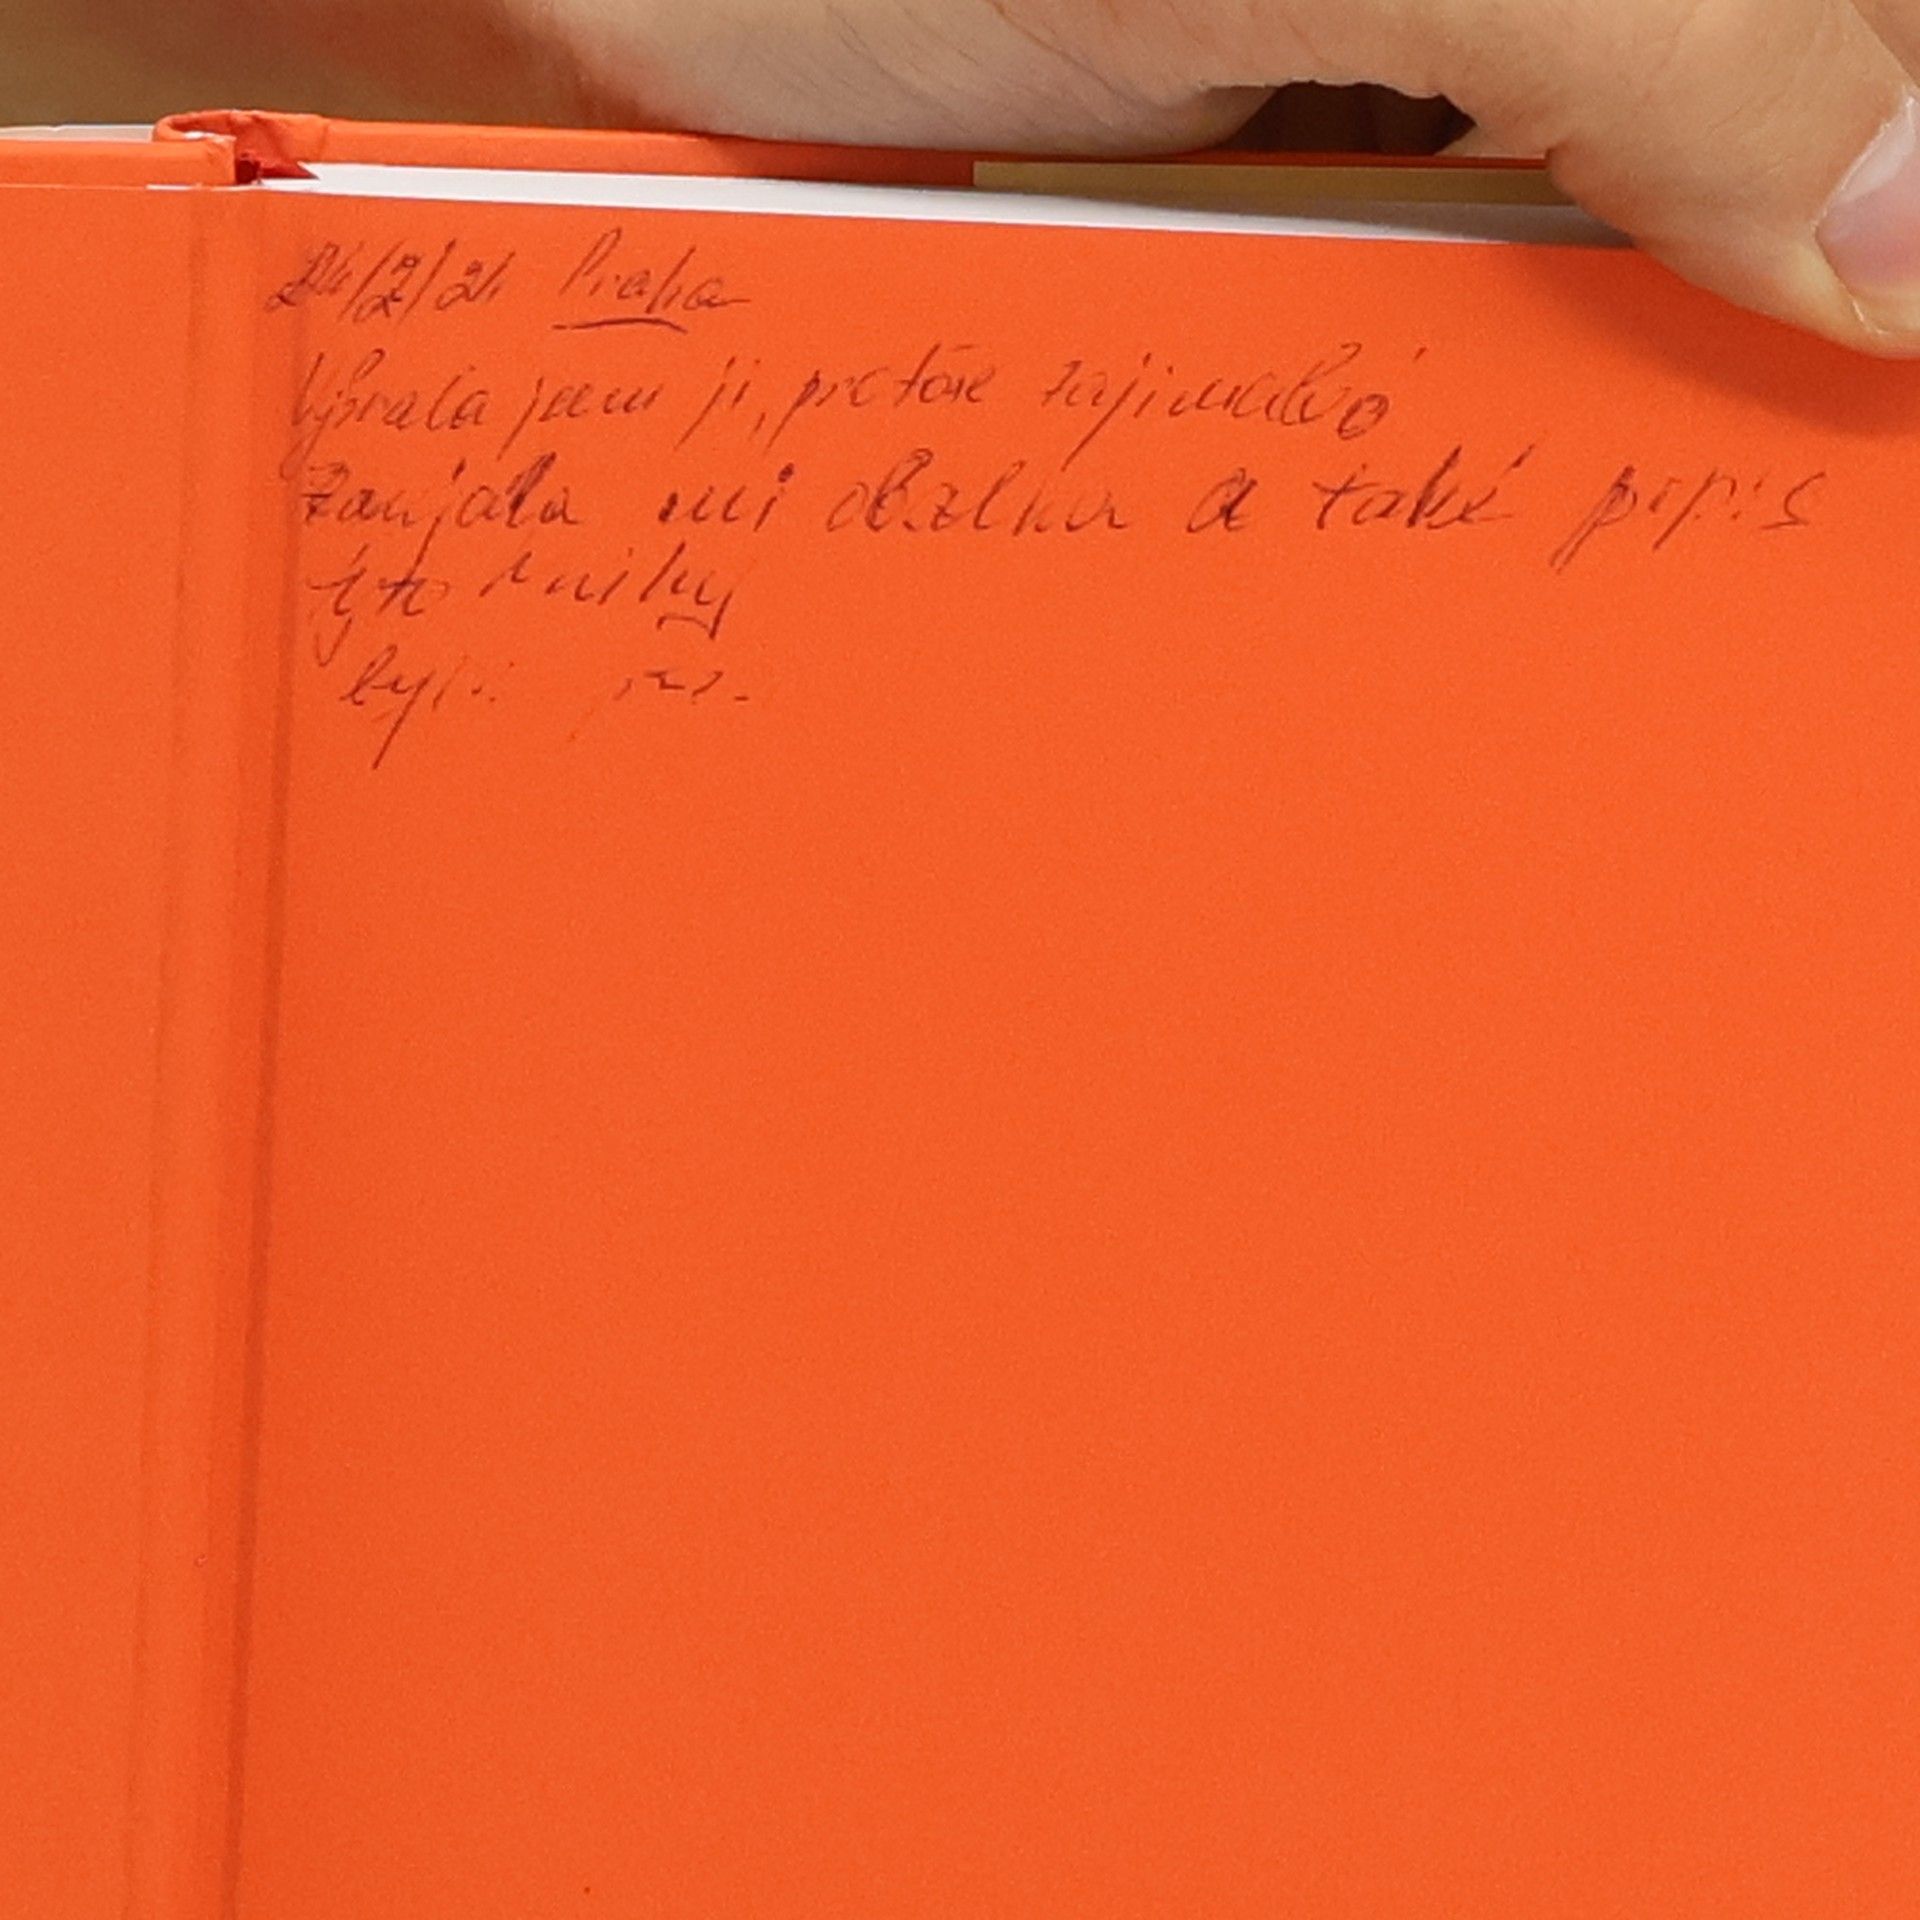 24/2/21 Praha
Vybrala jsem ji, protože zajímalo
Zaujala mi obálka a také popis
této knihy